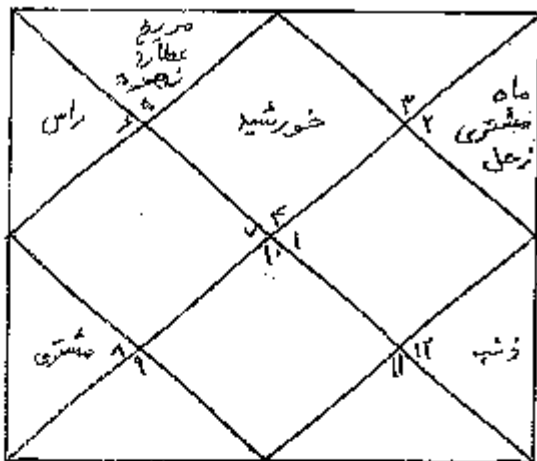 مریخ
عطارد
زهره
۵
۶
راس
خورشید
۳
۲
ماه
مشتری
زحل
۴
۷
۱
۱۰
مشتری
۸
۹
ذنب
۱۲
۱۱